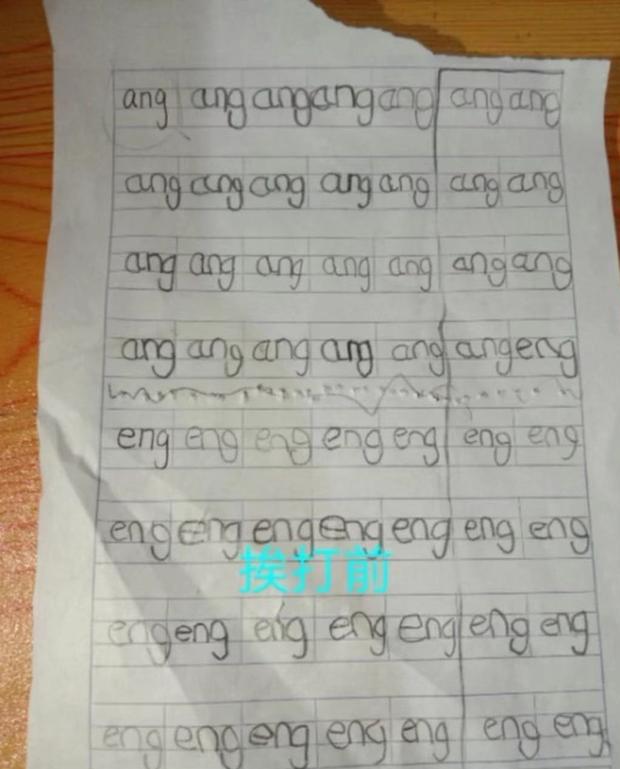 ang ang ang ang ang ang ang
ang ang ang ang ang ang ang
ang ang ang ang ang ang ang
ang ang ang ang ang ang eng
eng eng eng eng eng eng eng
eng eng eng eng eng eng eng
挨打前
eng eng eng eng eng eng eng
eng eng eng eng eng eng eng